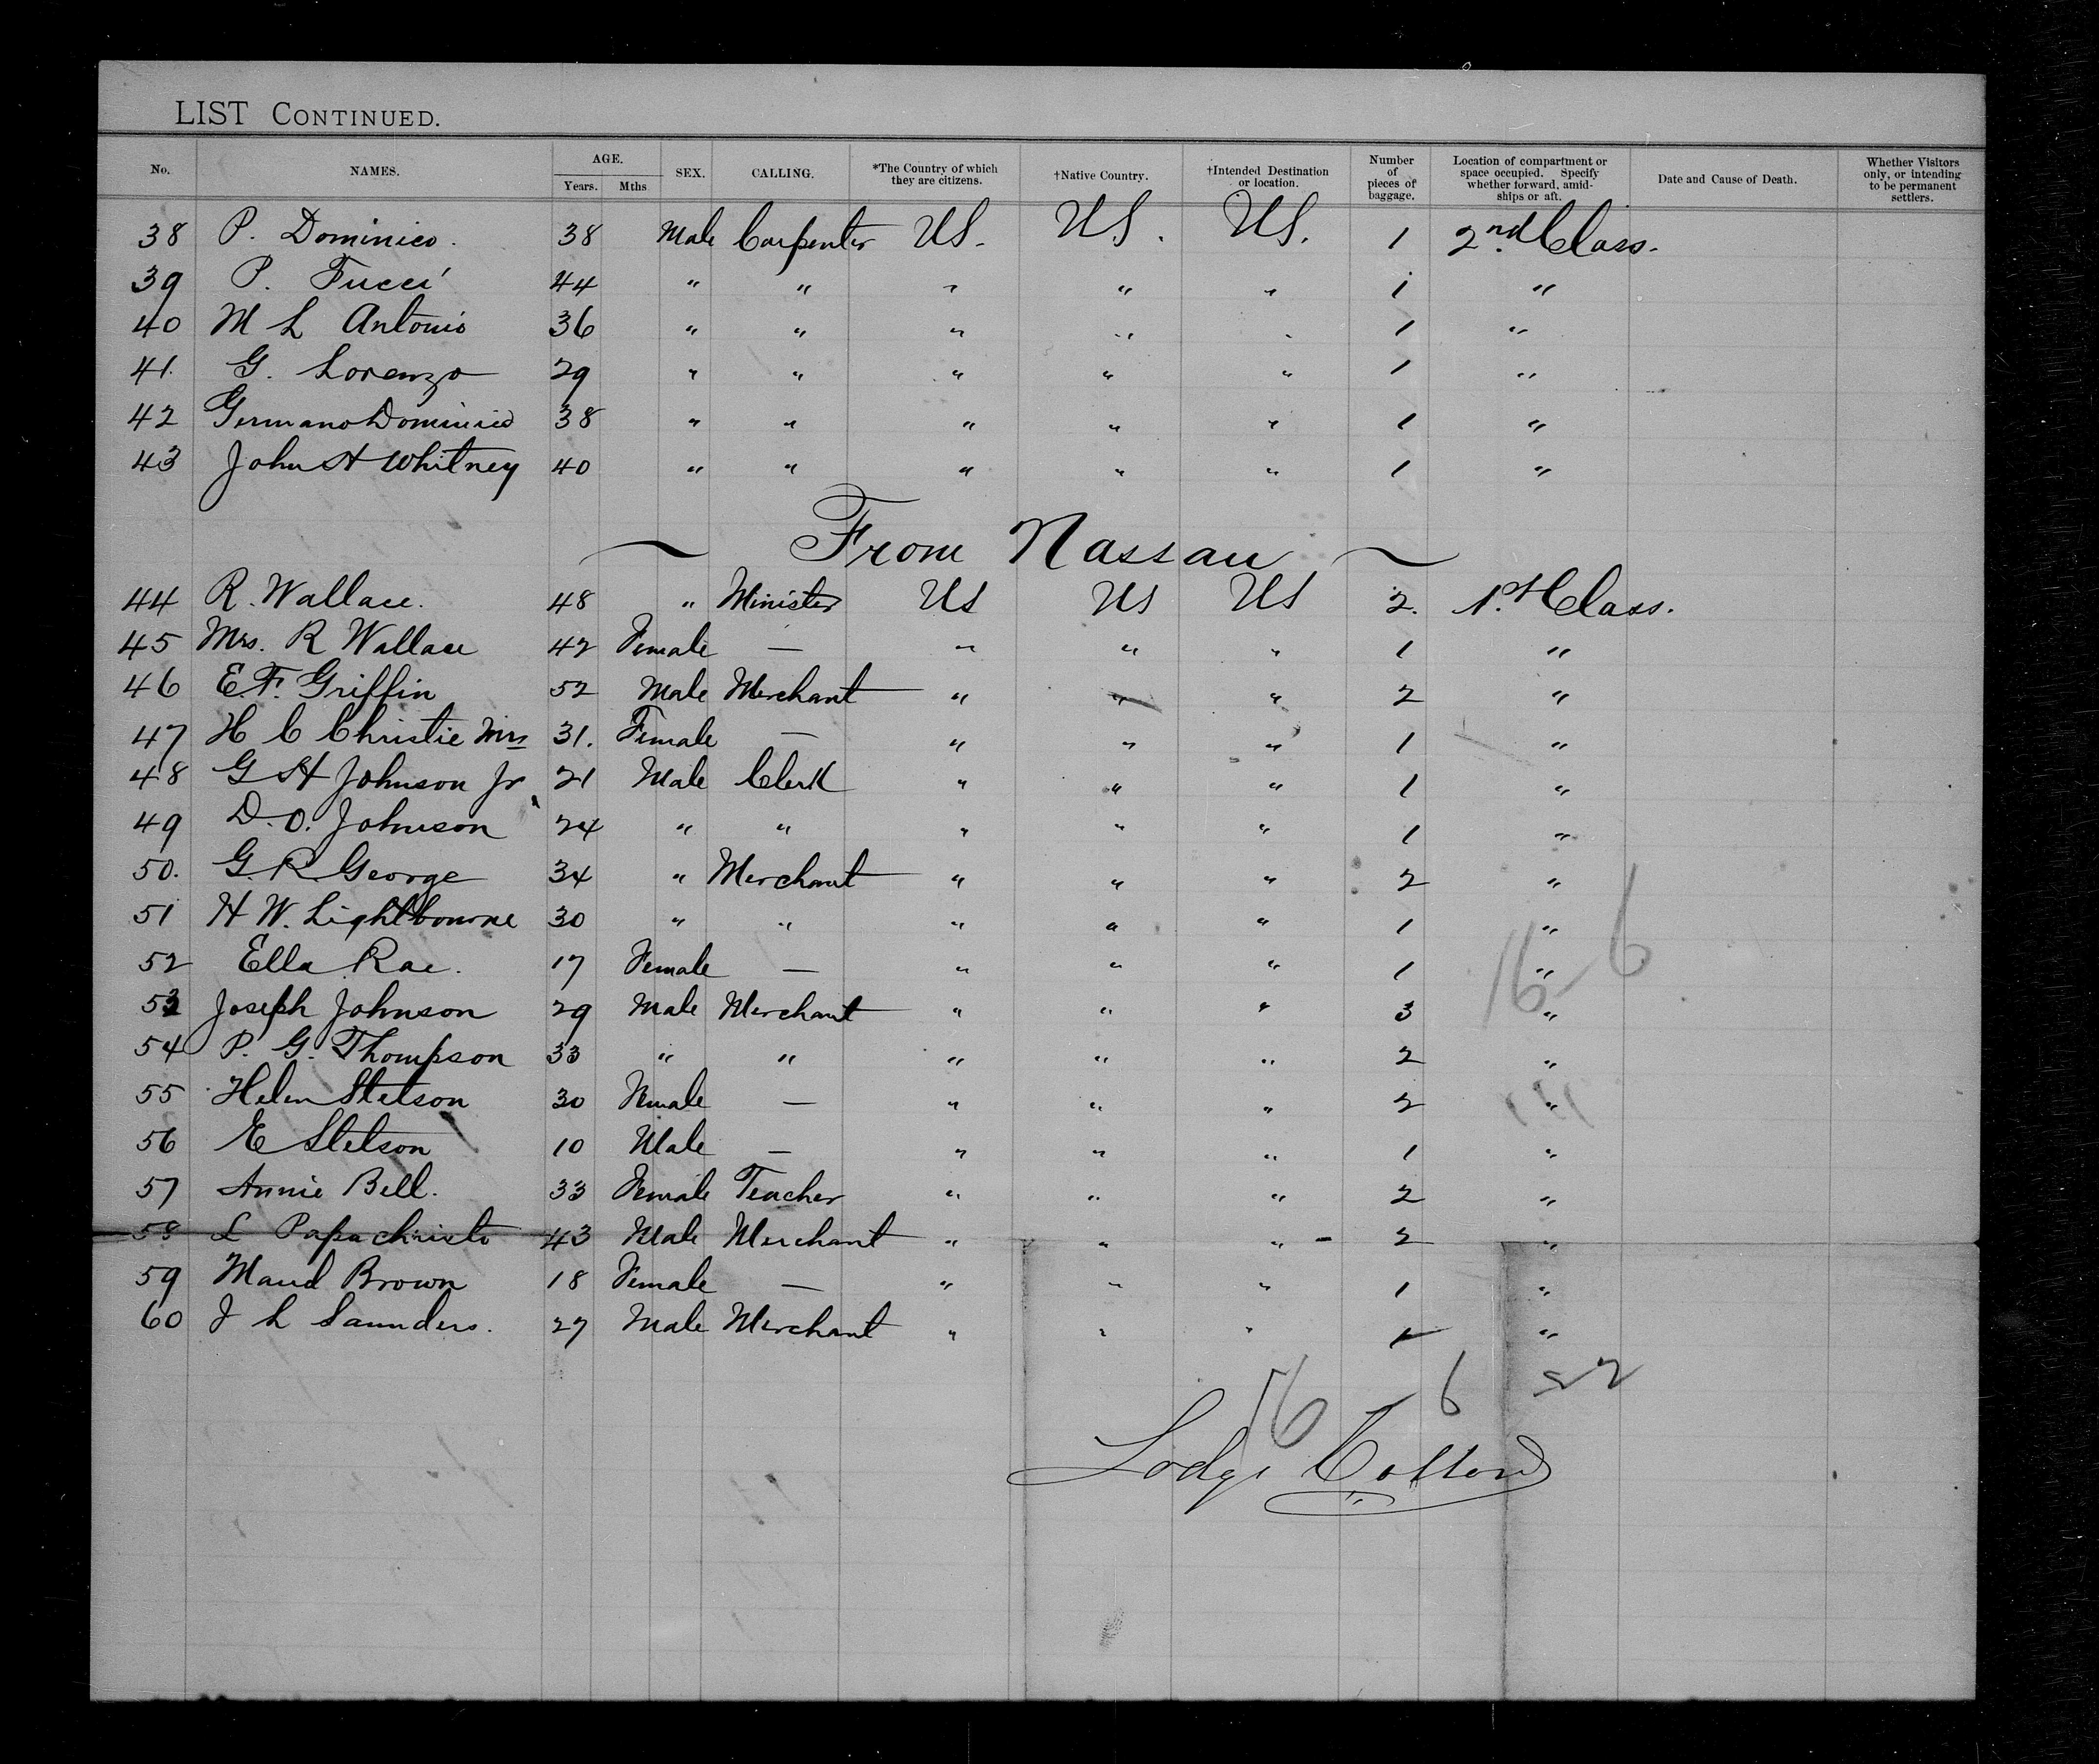 LIST CONTINUED.
No. NAMES. AGE. Years. Mths SEX. CALLING. *The Country of which they are citizens. †Native Country. †Intended Destination or location. Number of pieces of baggage. Location of compartment or space occupied. Specify whether forward, amidships or aft. Date and Cause of Death. Whether Visitors only, or intending to be permanent settlers.
38 P. Dominico. 38 Male Carpenter US. US. US. 1 2nd Class.
39 P. Fucci 44 " " " " " 1 "
40 M L Antonio 36 " " " " " 1 "
41. G. Lorenzo 29 " " " " " 1 "
42 Germano Dominico 38 " " " " " 1 "
43 John H Whitney 40 " " " " " 1 "
~ From Nassau ~
44 R. Wallace. 48 " Minister US US US 2. 1st Class.
45 Mrs. R Wallace 42 Female — " " " 1 "
46 E. F. Griffin 52 Male Merchant " " " 2 "
47 H C Christie Mrs 31. Female — " " " 1 "
48 G H Johnson Jr 21 Male Clerk " " " 1 "
49 D. O. Johnson 24 " " " " " 1 "
50. G. R. George 34 " Merchant " " " 2 "
51 H W. Lightbourne 30 " " " " " 1 "
52 Ella Rae. 17 Female — " " " 1 "
53 Joseph Johnson 29 Male Merchant " " " 3 "
54 P. G. Thompson 33 " " " " " 2 "
55 Helen Stetson 30 Female — " " " 2 "
56 E Stetson 10 Male — " " " 1 "
57 Annie Bell. 33 Female Teacher " " " 2 "
58 L Papachristo 43 Male Merchant " " " - 2 "
59 Maud Brown 18 Female — " " " 1 "
60 J L Saunders. 27 Male Merchant " " " 1 "
16-6
16 - 6 22